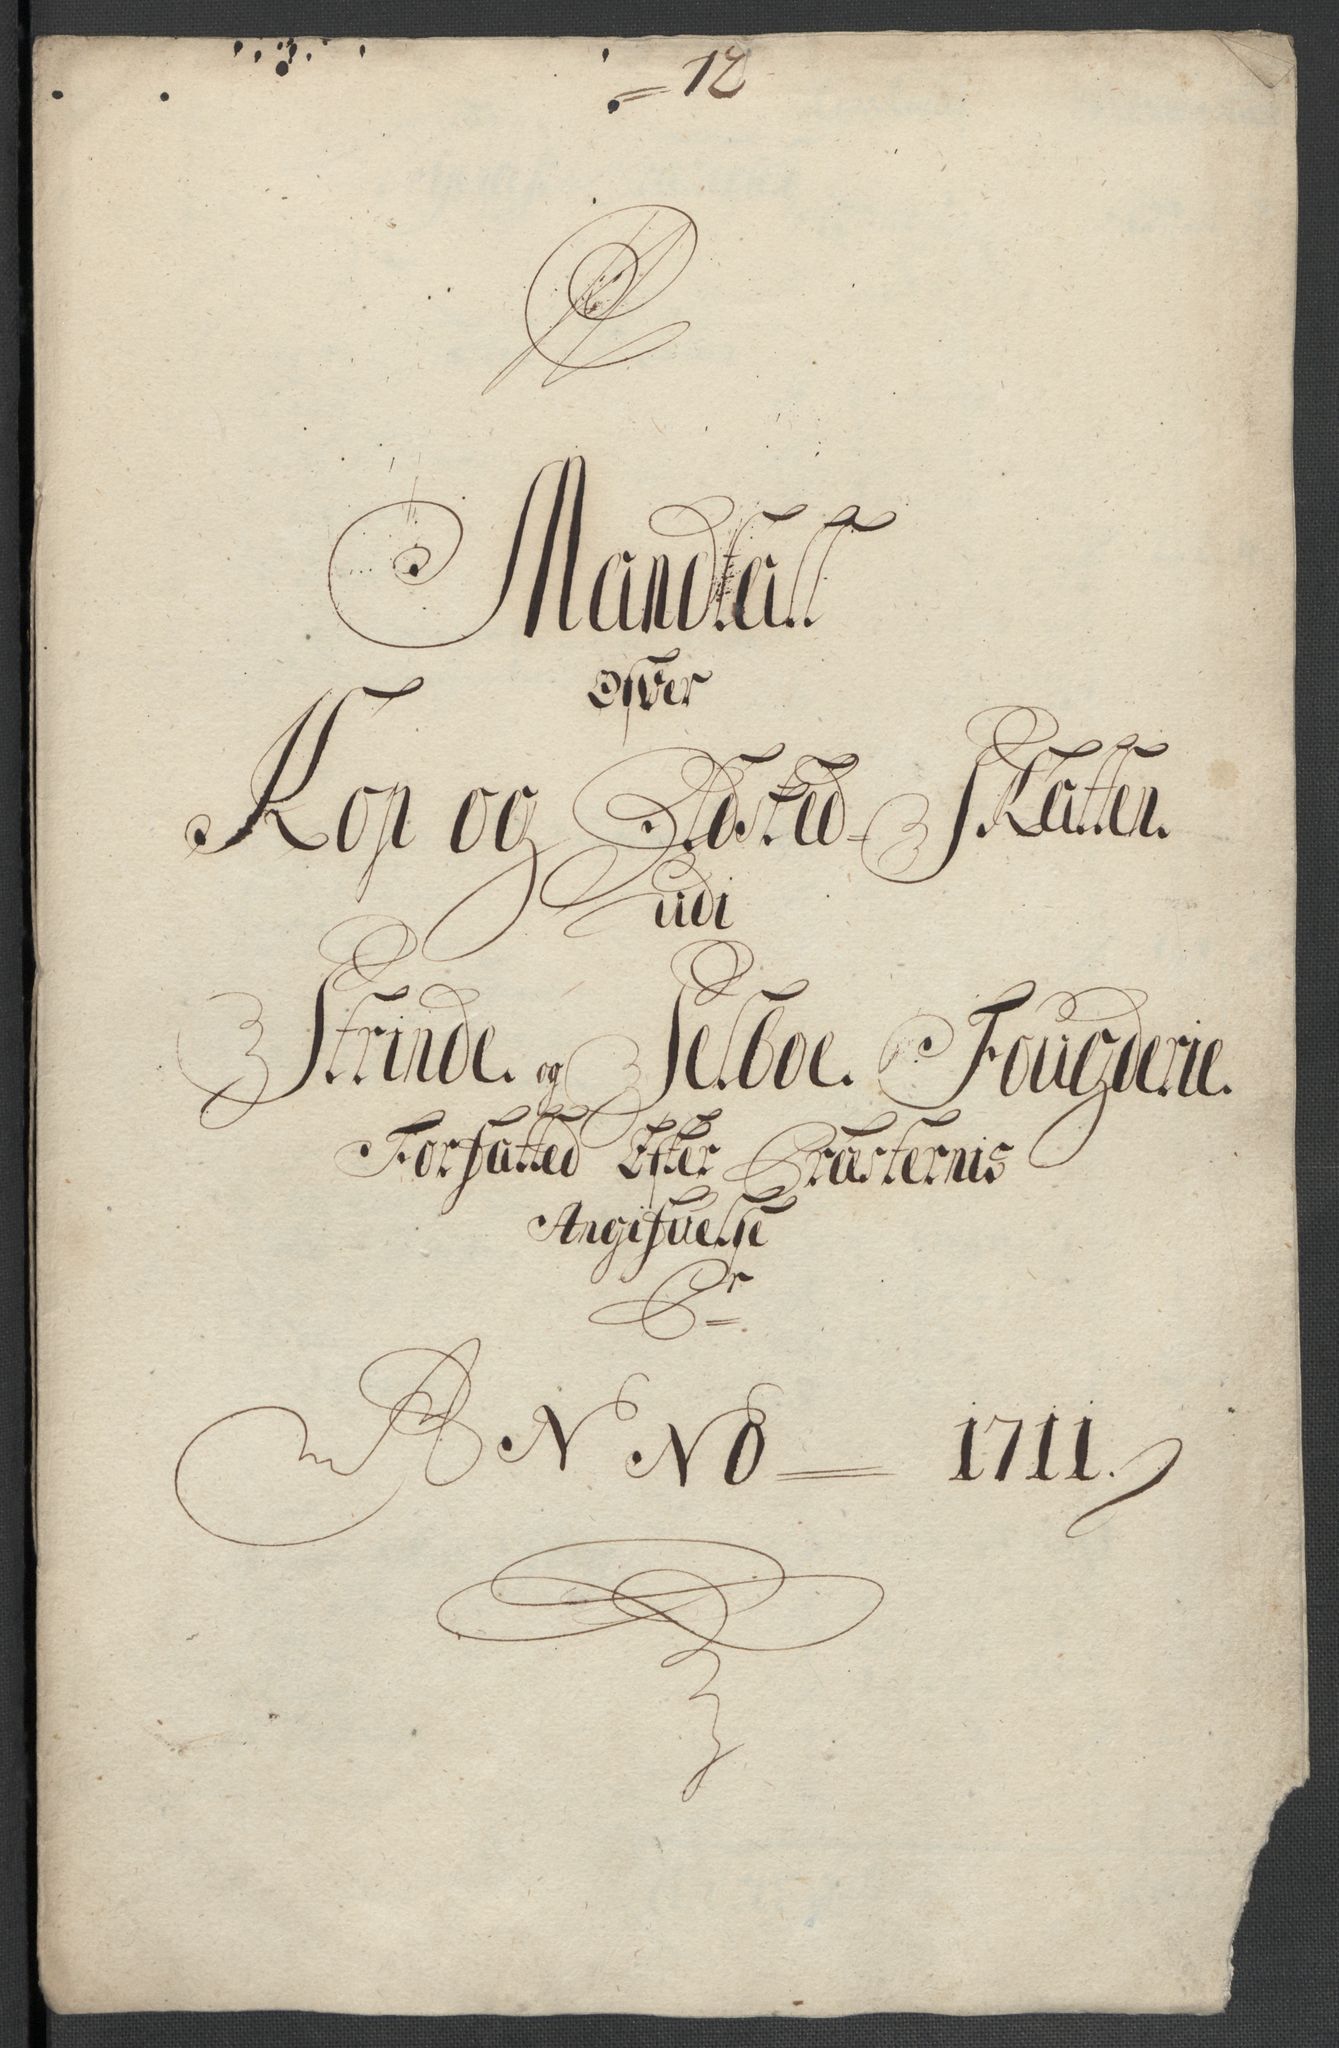 = 12
Mandtall
Ofver
Kop og Ildsted Skatten.
udi
Strinde. og Selboe. Fougderie.
Forfatted Efter Præsternis
Angifuelse
Pr =
ANNO = 1711.